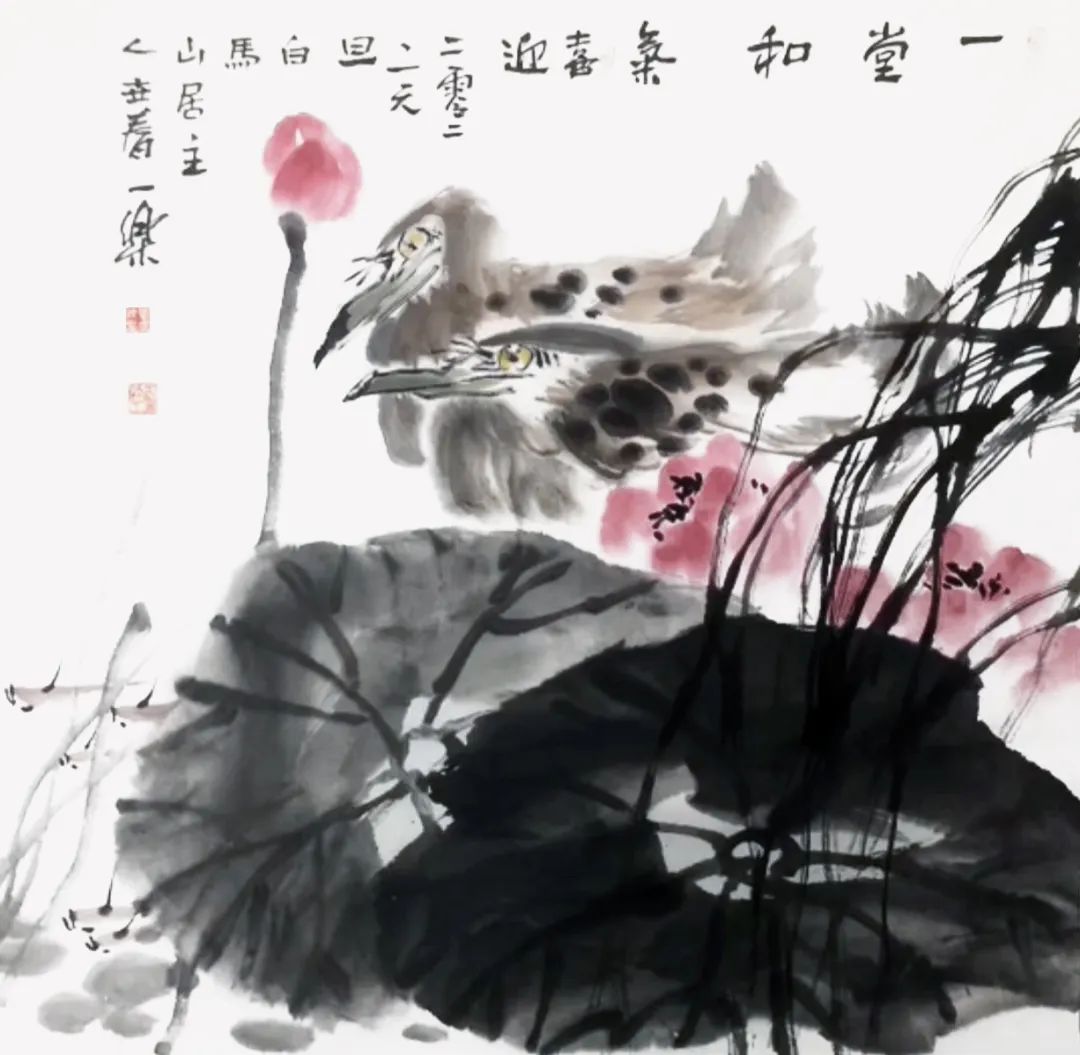 一堂和氣喜迎
二零二
二元
旦
白
馬
山居主
人世一樂